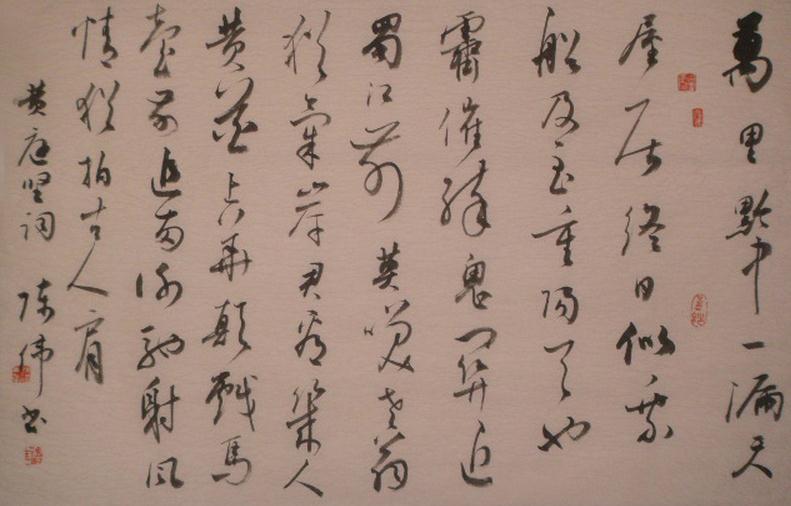 萬里黔中一漏天
屋居終日似乘
船及至重陽天也
霽催醉鬼门关近
蜀江前莫笑老翁
猶氣岸君看幾人
黄菊上華颠戲馬
臺前追兩謝馳射風
情猶拍古人肩
黄庭坚词 陈伟书